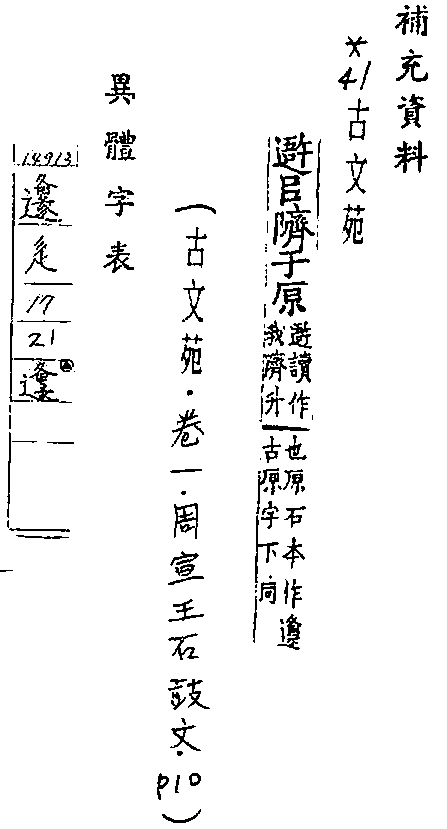 補充資料
*41古文苑
避㠯隮于原避讀作我隮升也原石本作邍古原字下同
(古文苑·卷一·周宣王石鼓文·P10)
異體字表
14913
邍
辵
17
21
邍